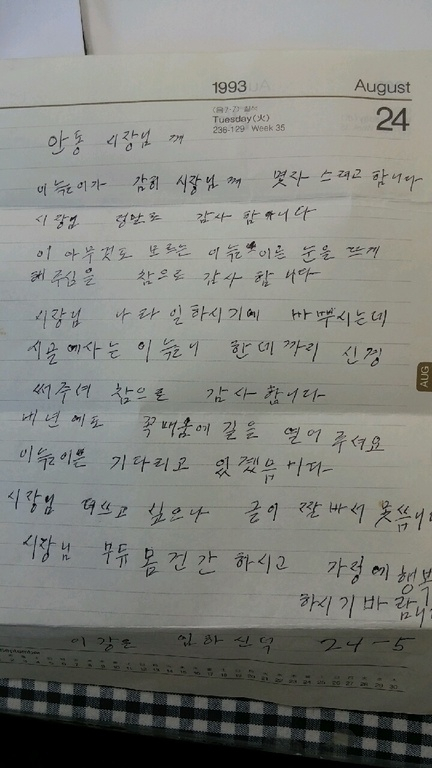 1993 August
Tuesday(火) 24
236-129 Week 35
안동 시장님 께
이 늙은이가 감히 시장님 께 몇자 스려고 합니다
시장님 정말로 감사 합니다
이 아무것도 모르는 이 늙은이은 눈을 뜨게
해 주심을 참으로 감사 합니다
시장님 나라 일 하시기에 바쁘시는데
시골에 사는 이 늙으니 한데 까지 신경
써주셔 참으로 감사 합니다
내년에도 꼭 배움에 길을 열어 주셔요
이 늙은이는 기다리고 있겠읍니다
시장님 더 쓰고 싶으나 글이 짤바서 못씀니
시장님 부듀 몸 건간 하시고 가정에 행복
하시기 바람니
AUG
임하 신덕 24-5